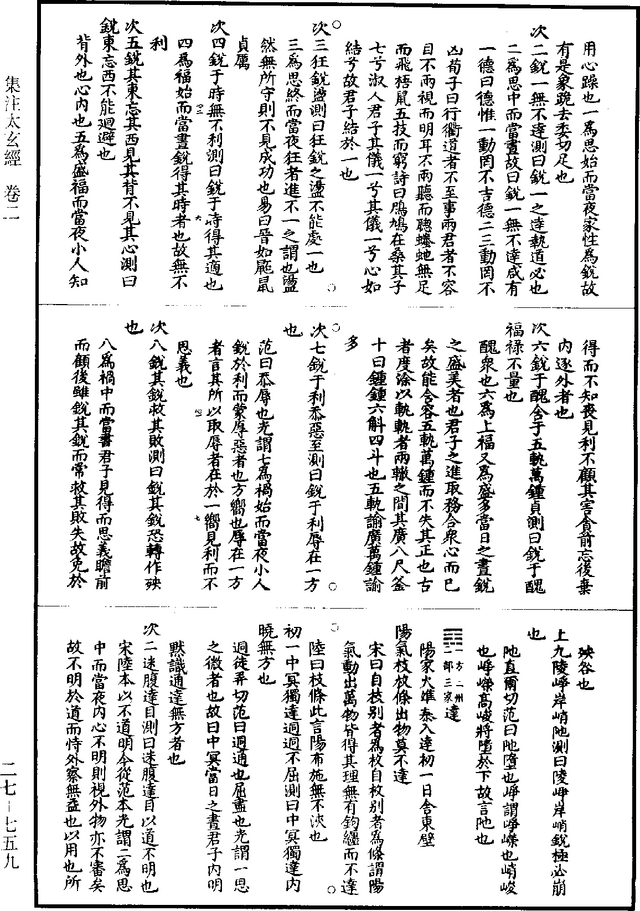 用心躁也一爲思始而當夜家性爲銳故
有是象跪去委切足也
次二銳一無不達測曰銳一之達執道必也
二爲思中而當晝故曰銳一無不達咸有
一德曰德惟一動罔不吉德二三動罔不
凶荀子曰行衢道者不至事兩君者不容
目不兩視而明耳不兩聽而聰螣虵無足
而飛梧鼠五技而窮詩曰鳲鳩在桑其子
七兮淑人君子其儀一兮其儀一兮心如
結兮故君子結於一也
次三狂銳盪測曰狂銳之盪不能處一也
三爲思終而當夜狂者進不一之謂也盪
然無所守則不見成功也易曰晉如鼫鼠
貞厲
次四銳于時無不利測曰銳于時得其適也
四爲福始而當晝銳得其時者也故無不
利
次五銳其東忘其西見其背不見其心測曰
銳東忘西不能迴避也
背外也心內也五爲盛福而當夜小人知
得而不知喪見利不顧其害貪前忘後棄
內逐外者也
次六銳于醜含于五軌萬鍾貞測曰銳于醜
福祿不量也
醜衆也六爲上福又爲盛多當日之晝銳
之盛美者也君子之進取務合衆心而已
矣故能含容五軌萬鍾而不失其正也古
者度涂以軌軌者兩轍之間其廣八尺釜
十曰鍾鍾六斛四斗也五軌諭廣萬鍾諭
多
次七銳于利忝惡至測曰銳于利辱在一方
也
范曰忝辱也光謂七爲禍始而當夜小人
銳於利而蒙辱惡者也方嚮也辱在一方
者言其所以取辱者在於一嚮見利而不
思義也
次八銳其銳救其敗測曰銳其銳恐轉作殃
也
八爲禍中而當晝君子見得而思義瞻前
而顧後雖銳其銳而常救其敗失故免於
殃咎也
上九陵崢岸峭陁測曰陵崢岸峭銳極必崩
也
陁直爾切范曰陁墮也崢謂崢嶸也峭峻
也崢嶸高峻將墮於下故言陁也
一方二州二部三家達
陽家火準泰入達初一日舍東壁
陽氣枝枚條出物莫不達
宋曰自枝別者爲枚自枚別者爲條謂陽
氣動出萬物皆得其理無有鉤纏而不達
陸曰枝條此言陽布施無不浹也
初一中冥獨達迵迵不屈測曰中冥獨達內
曉無方也
迵徒弄切范曰迵通也屈盡也光謂一思
之微者也故曰中冥當日之晝君子內明
默識通達無方者也
次二迷腹達目測曰迷腹達目以道不明也
宋陸本以不道明今從范本光謂二爲思
中而當夜內心不明則視外物亦不審矣
故不明於道而恃外察無益也以用也所
集注太玄經 卷二
二七-七五九